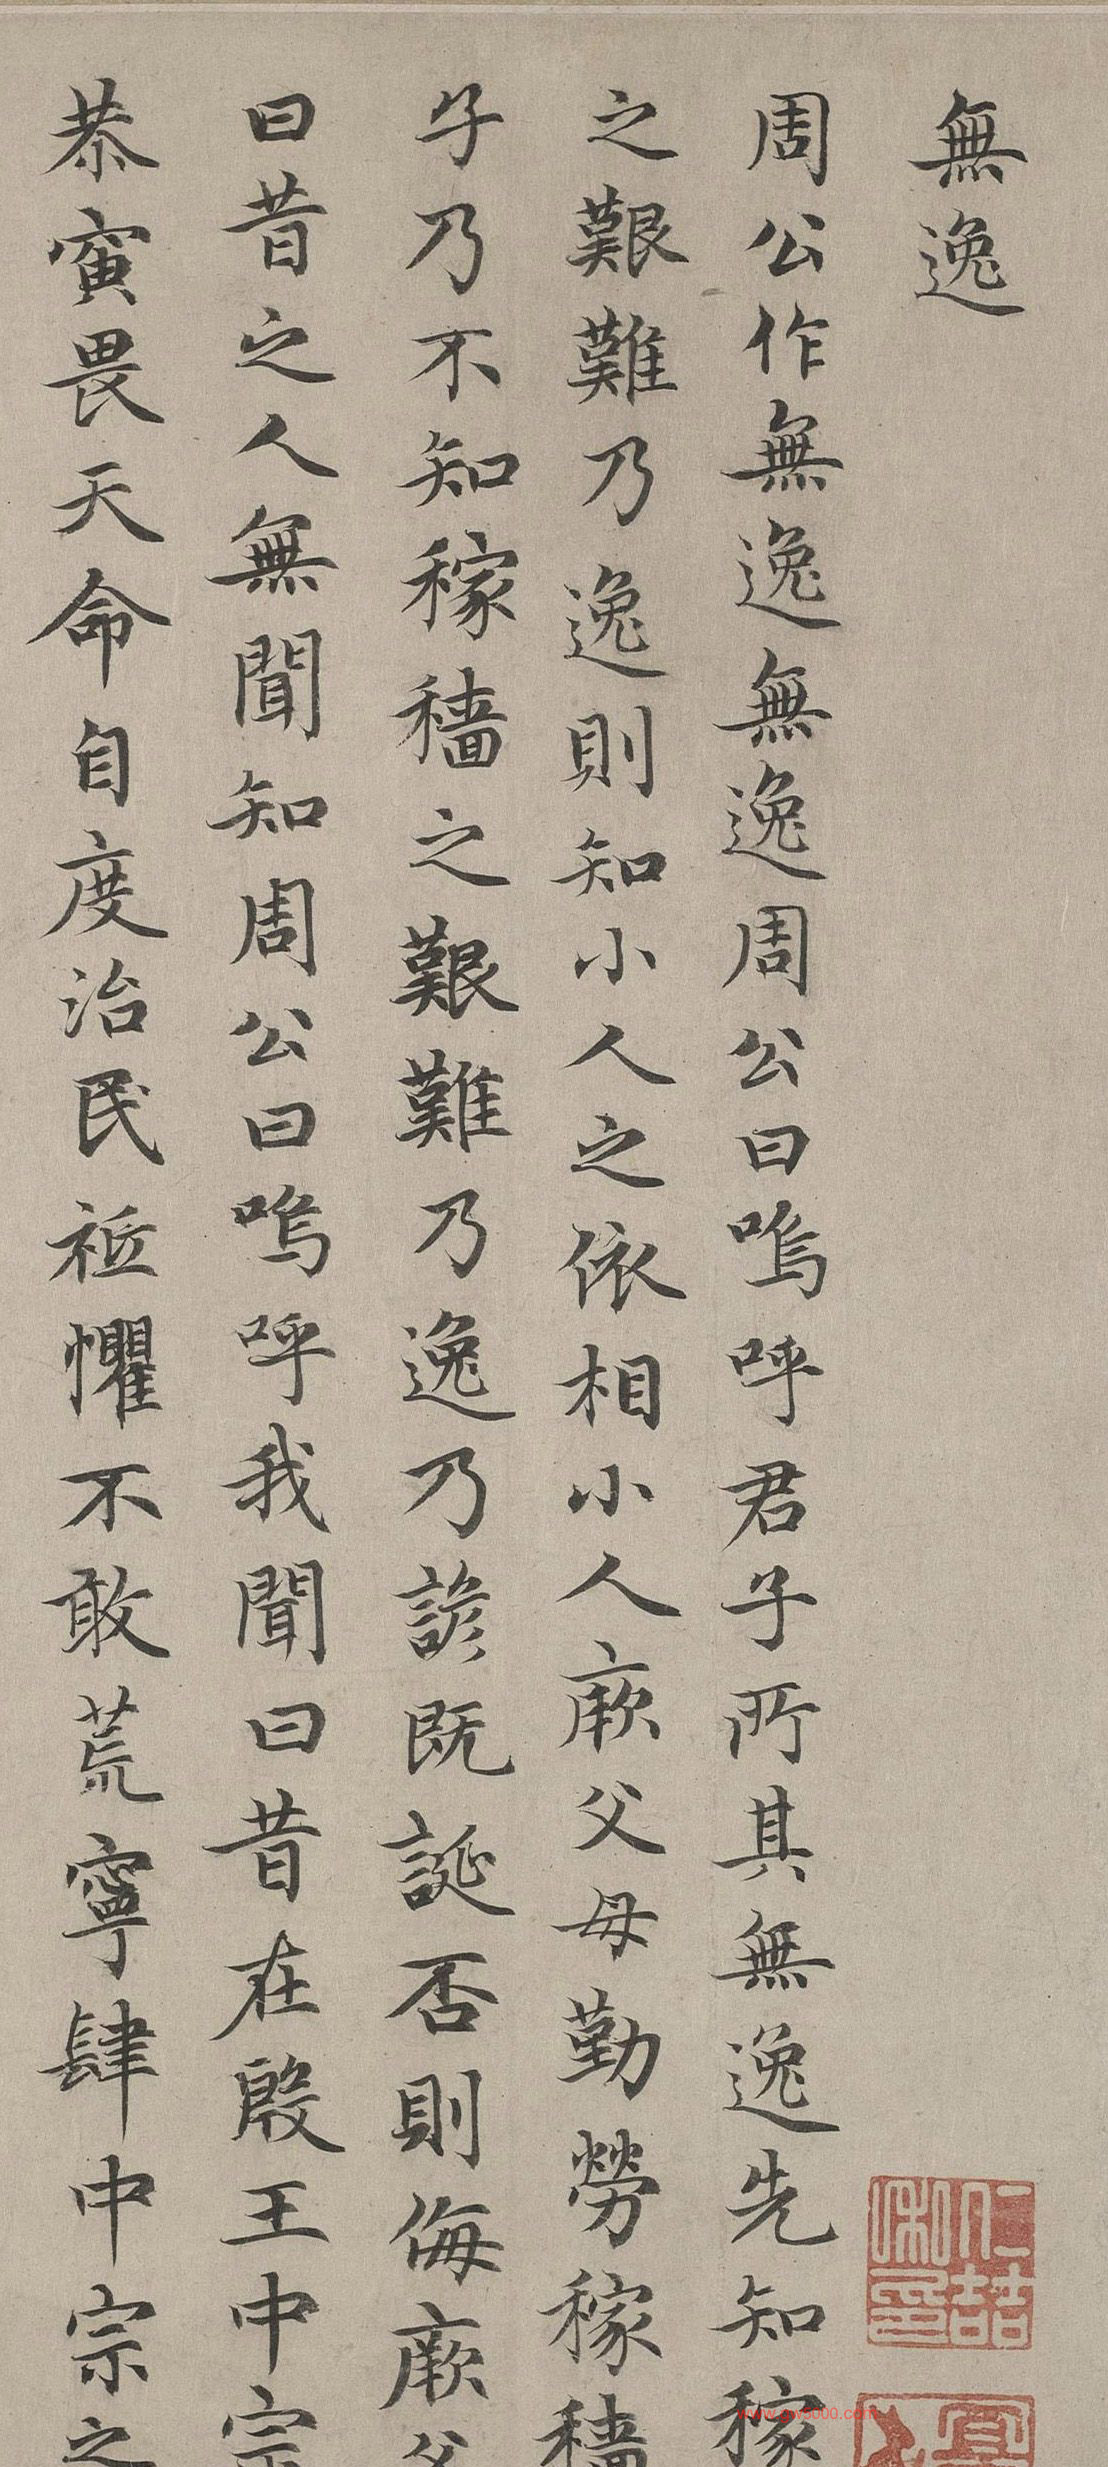 無逸
周公作無逸無逸周公曰嗚呼君子所其無逸先知稼
之艱難乃逸則知小人之依相小人厥父母勤勞稼穡
子乃不知稼穡之艱難乃逸乃諺既誕否則侮厥父
曰昔之人無聞知周公曰嗚呼我聞曰昔在殷王中宗
恭寅畏天命自度治民祗懼不敢荒寧肆中宗之